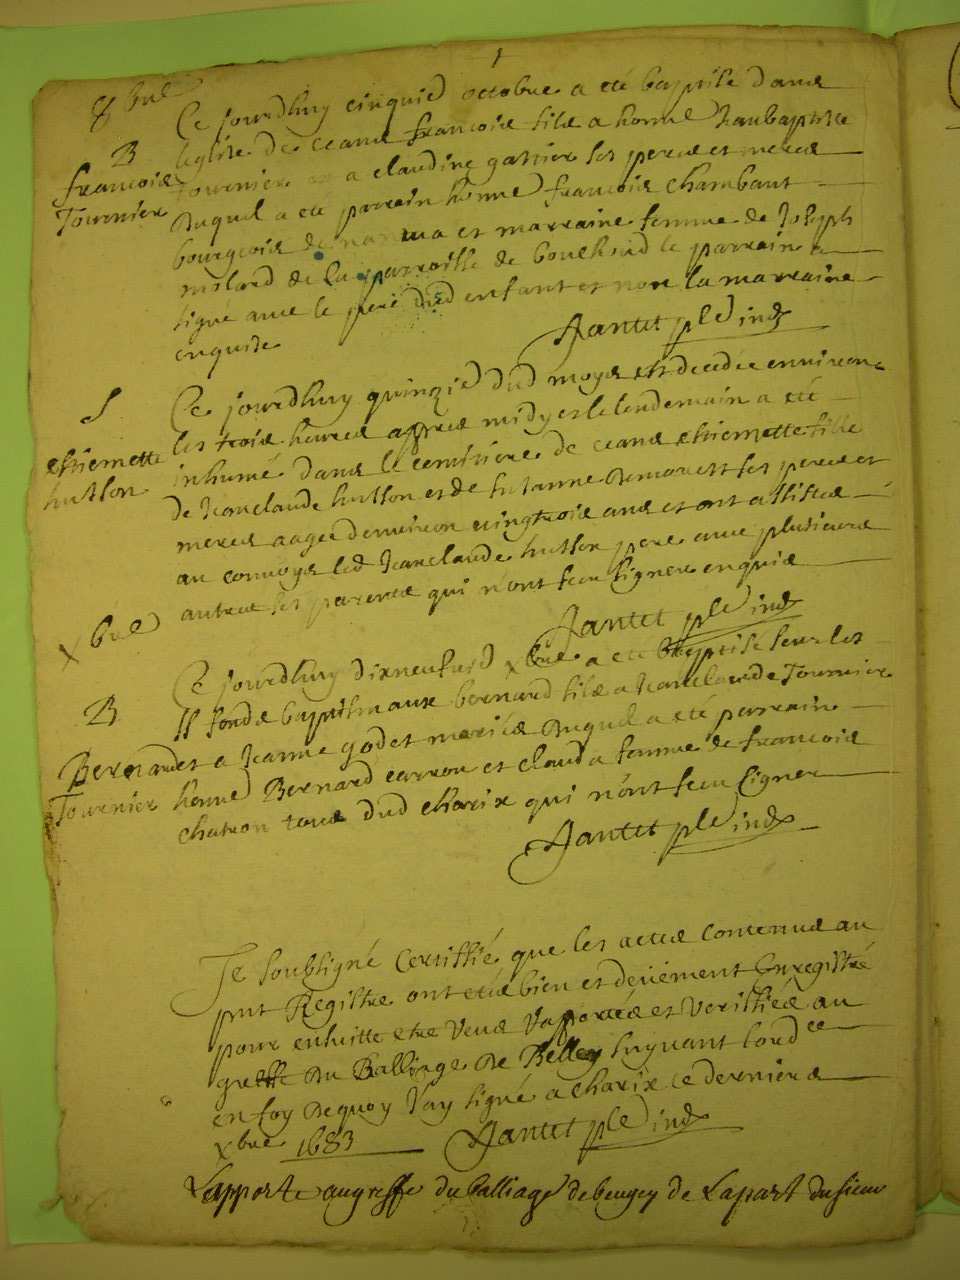 8 bre
Ce jourdhuy cinquie octobre a eté baptisé dans
B
francois
Tournier
leglise de ceans francois fils a honne Jeanbaptiste
Tournier et a claudine gattier ses peres et meres
Duquel a eté parrain honne francois chambaut
bourgeois de nantua et marraine femme de Joseph
milard de la parroisse de le parrain a
signé avec le pere dud enfant et non la marraine
enquise
Jantet ple ind
Ce jourdhuy quinzie dud moys est decedée environ
S
estiemette
hutson
les trois heures appres midy et le lendemain a eté
inhumé dans le cemitiere de ceans estiemette fille
de Jeanclaude hutson et de Susanne ses peres et
meres aagée denviron vingtrois ans et ont assistes
au convoye led Jeanclaude hutson pere avec plusieurs
autres ses parents qui n'ont sceu signer enquis
Jantet ple ind
X bre
Ce jourdhuy dixneufie Xbre a eté baptisé sur les
B
Bernard
Tournier
ss fonds baptismaux bernard fils a Jeanclaude Tournier
et a Jeanne godet mariés Duquel a eté parrain
honne Bernard carron et clauda femme de francois
chatron tous dud charix qui n'ont sceu signer
Jantet ple ind
Je soubsigné Certiffié que les actes contenus au
pnt Registre ont etés bien et deüement Enregistré
pour ensuitte etre Veus rapportés et Veriffiés au
greffe du Balliage De Belley suyvant lordce
en foy Dequoy Jay signé a charix ce dernier
Xbre 1683 Jantet ple ind
Lapporte au greffe du balliage de beugey de La part du sieur